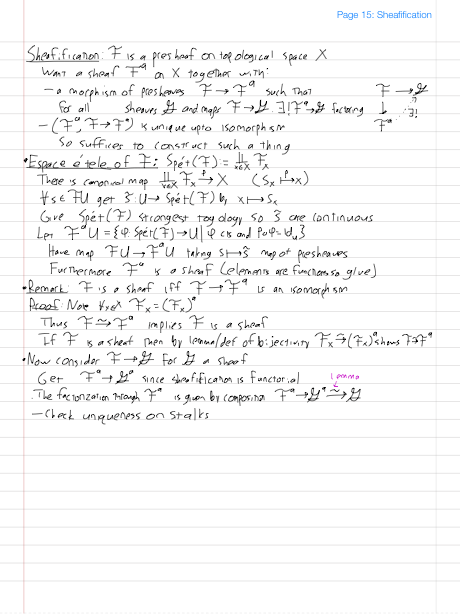 Page 15: Sheafification
Sheafification: ℱ is a presheaf on topological space X
Want a sheaf ℱᵃ on X together with:
– a morphism of presheaves ℱ → ℱᵃ such that ℱ → 𝒢
for all sheaves 𝒢 and maps ℱ → 𝒢 ∃! ℱᵃ → 𝒢 factoring ↓ ∃!
– (ℱᵃ, ℱ → ℱᵃ) is unique up to isomorphism ℱᵃ
So suffices to construct such a thing
• Espace étele of ℱ: Spét(ℱ) := ∐_{x∈X} ℱₓ
There is canonical map ∐_{x∈X} ℱₓ →ᵖ X (Sₓ ↦ᵖ x)
∀s∈ℱU get s̃: U → Spét(ℱ) by x ↦ Sₓ
Give Spét(ℱ) strongest topology so s̃ are continuous
Let ℱᵃU = {φ: Spét(ℱ) → U | φ cts and p∘φ = id_U}
Have map ℱU → ℱᵃU taking s ↦ s̃ map of presheaves
Furthermore ℱᵃ is a sheaf (elements are functions so glue)
• Remark: ℱ is a sheaf iff ℱ → ℱᵃ is an isomorphism
Proof: Note ∀x∈X ℱₓ = (ℱₓ)ᵃ
Thus ℱ ≃ ℱᵃ implies ℱ is a sheaf
If ℱ is a sheaf then by lemma/def of bijectivity ℱₓ ≃→ (ℱₓ)ᵃ shows ℱ ≃ ℱᵃ
• Now consider ℱ → 𝒢 for 𝒢 a sheaf
Get ℱᵃ → 𝒢ᵃ since sheafification is functorial lemma
. The factorization through ℱᵃ is given by composition ℱᵃ → 𝒢ᵃ ≃→ 𝒢
– Check uniqueness on stalks